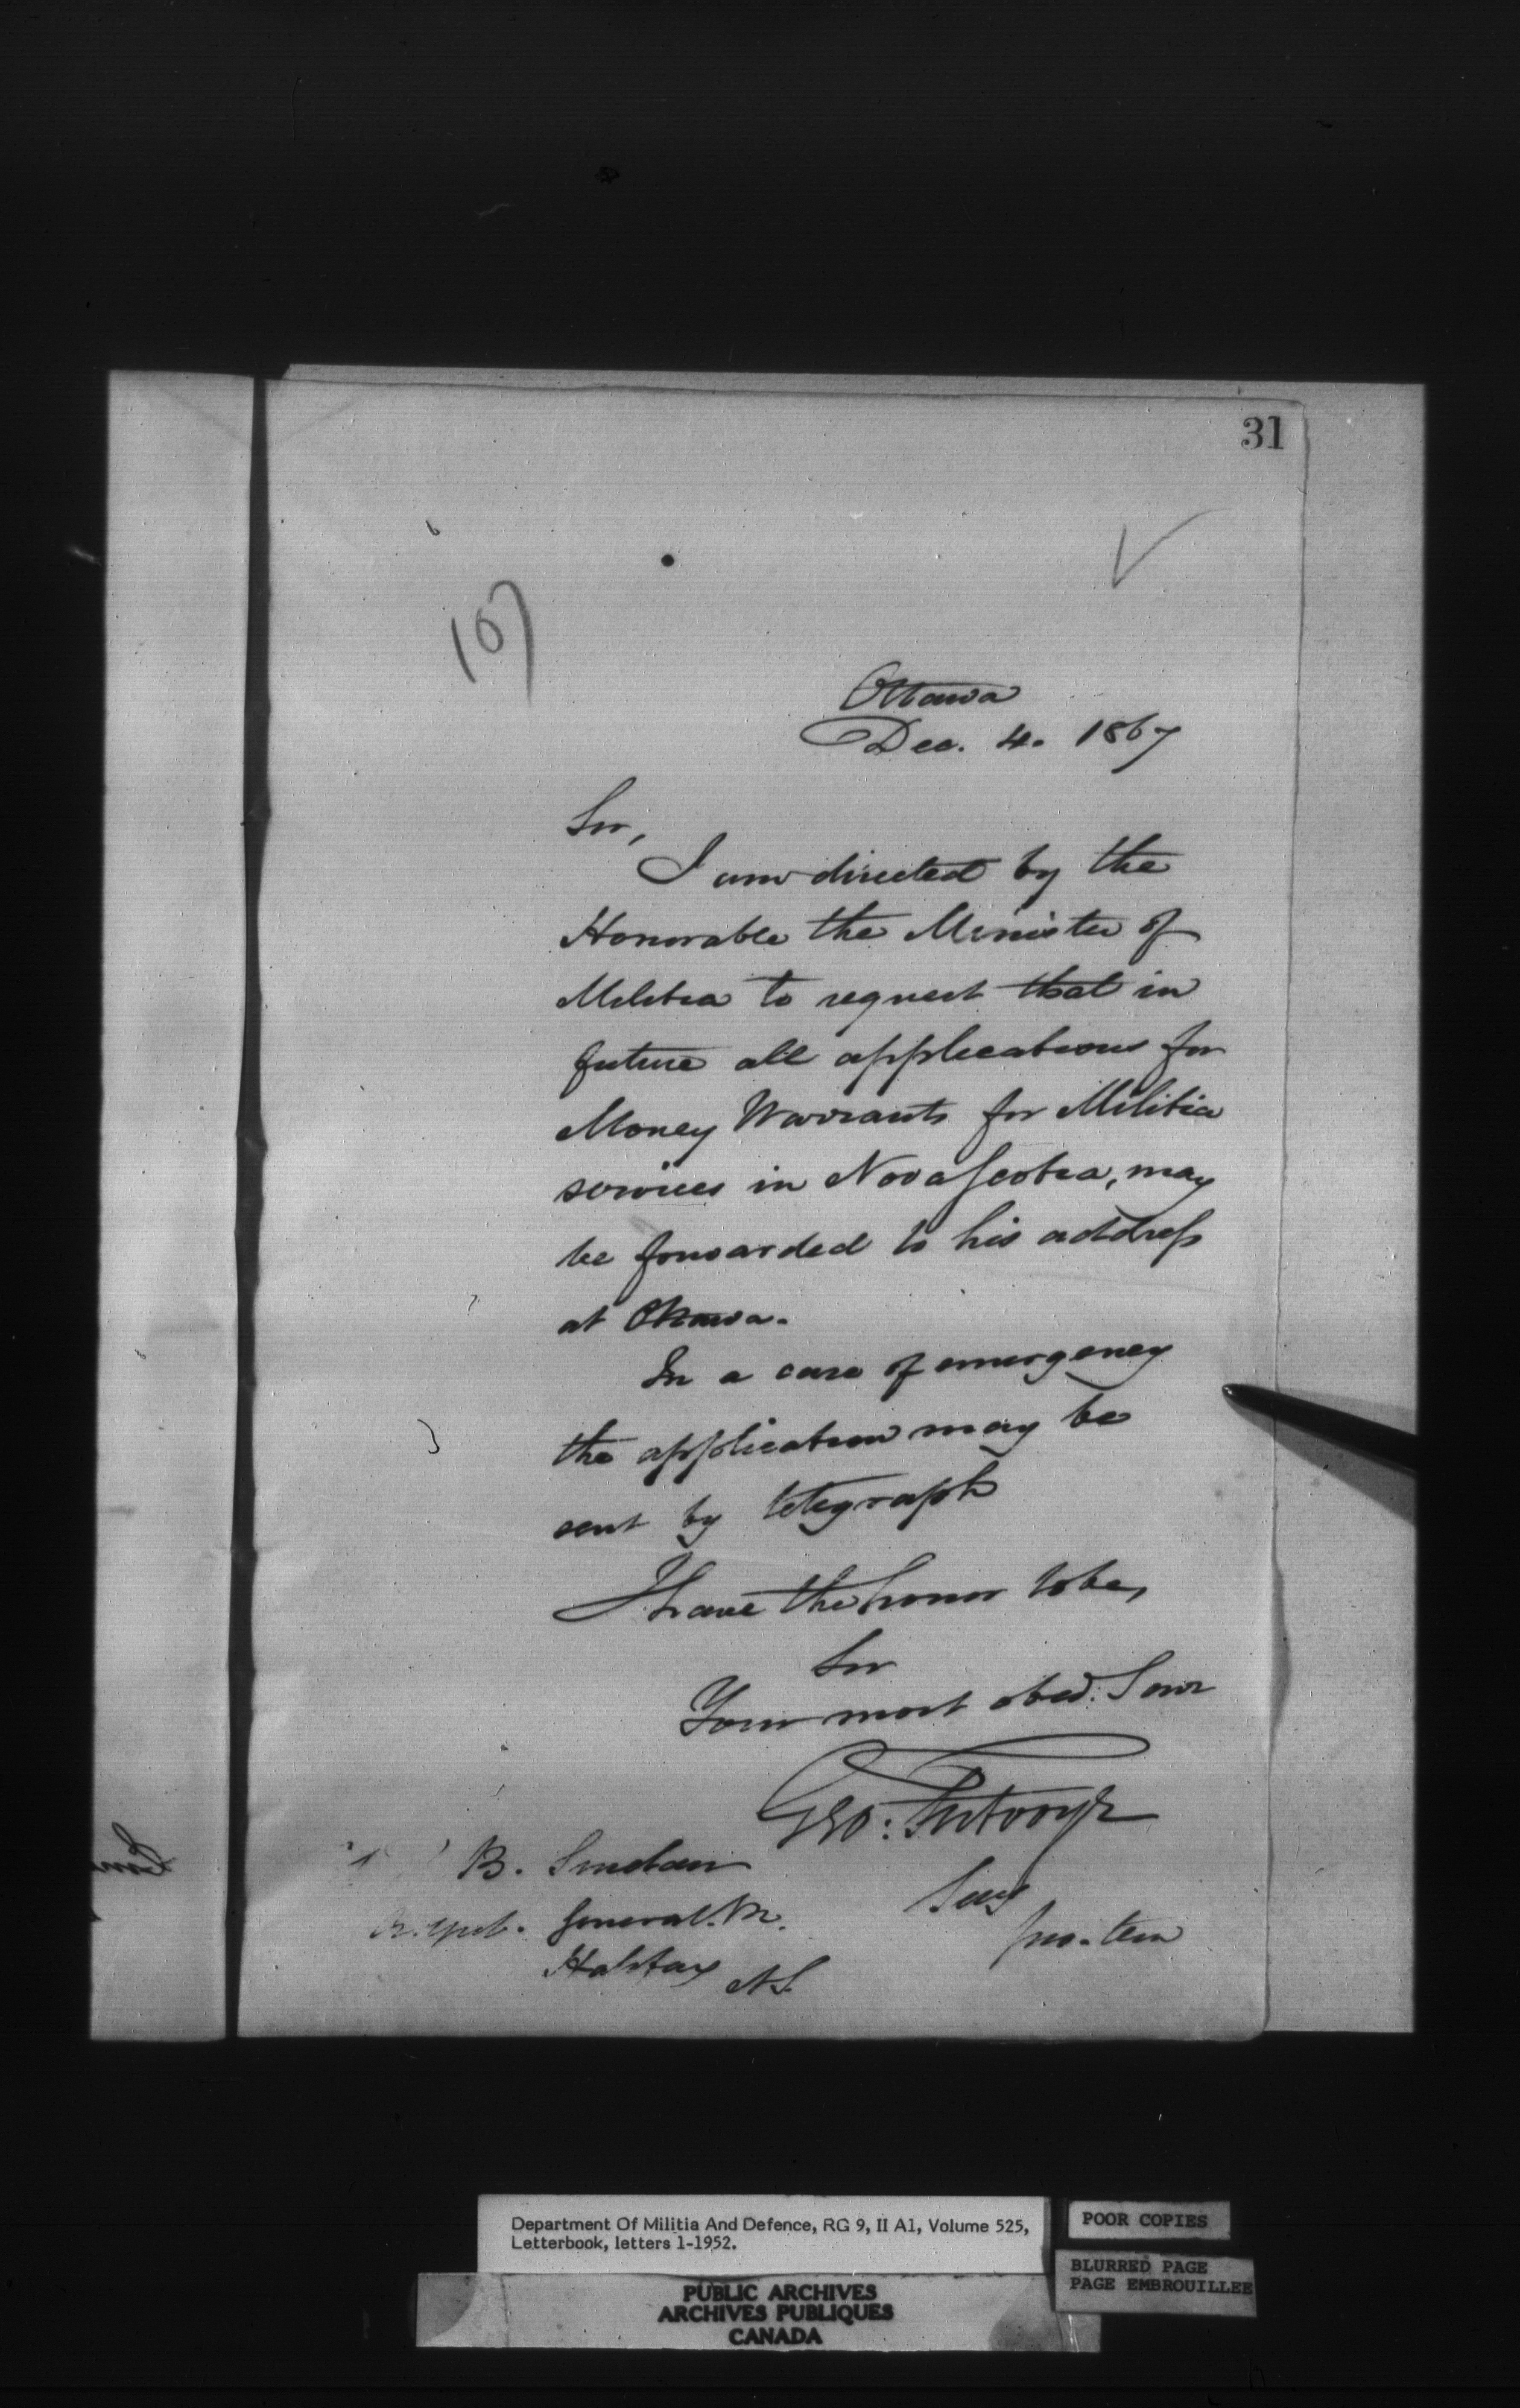 31
107
Ottawa
Dec. 4. 1867
Sir,
I am directed by the
Honorable the Minister of
Militia to request that in
future all applications for
Money Warrants for Militia
services in Nova Scotia, may
be forwarded to his address
at Ottawa.
In a case of emergency
the application may be
sent by telegraph
I have the honor to be,
Sir
Your most obed. Serv
Geo: Futvoye
B. Sinclair
General. M.
Halifax N.S.
Secy
pro. tem
Department Of Militia And Defence, RG 9, II A1, Volume 525,
Letterbook, letters 1-1952.
POOR COPIES
BLURRED PAGE
PAGE EMBROUILLEE
PUBLIC ARCHIVES
ARCHIVES PUBLIQUES
CANADA